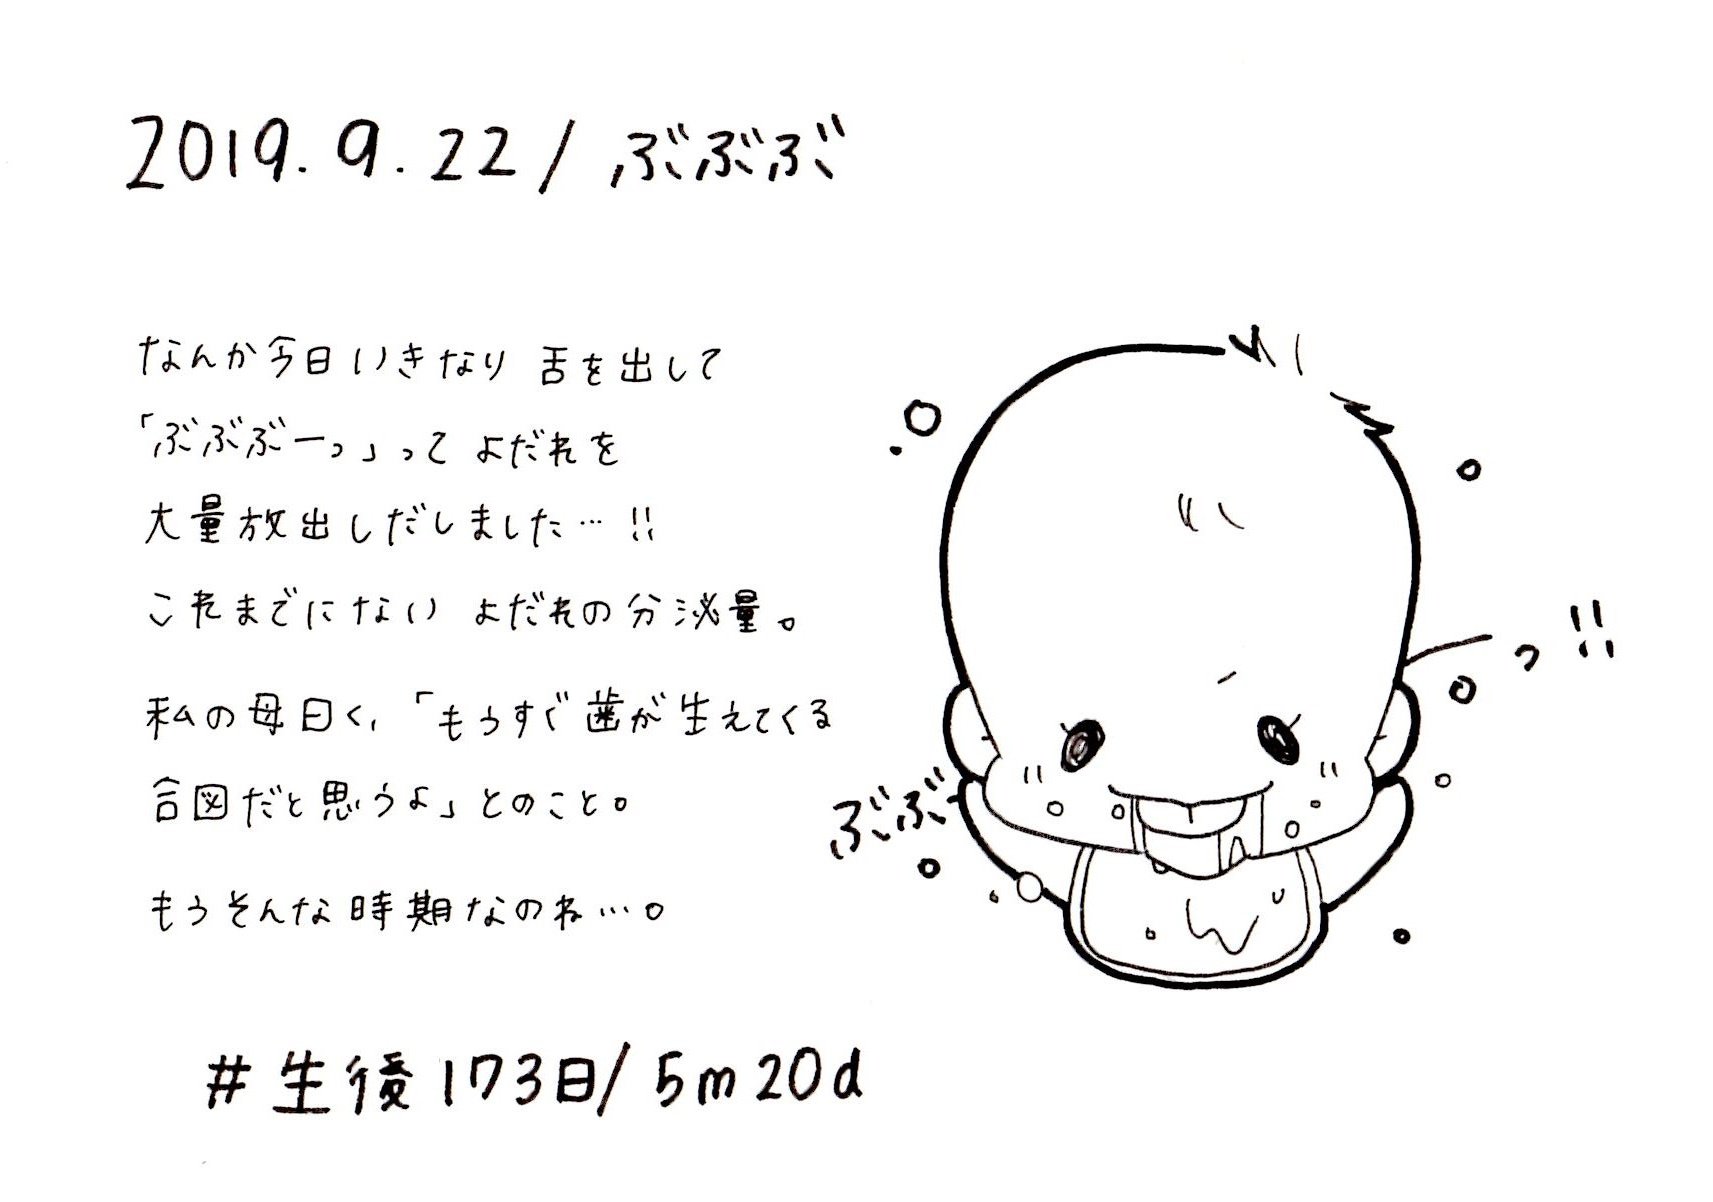 2019.9.22/ぶぶぶ
なんか今日いきなり 舌を出して
「ぶぶぶーっ」って よだれを
大量放出しだしました…!!
これまでにない よだれの分泌量。
私の母曰く,「もうすぐ歯が生えてくる
合図だと思うよ」とのこと。
もうそんな時期なのね…。
ぶぶ
っ!!
#生後173日/5m20d